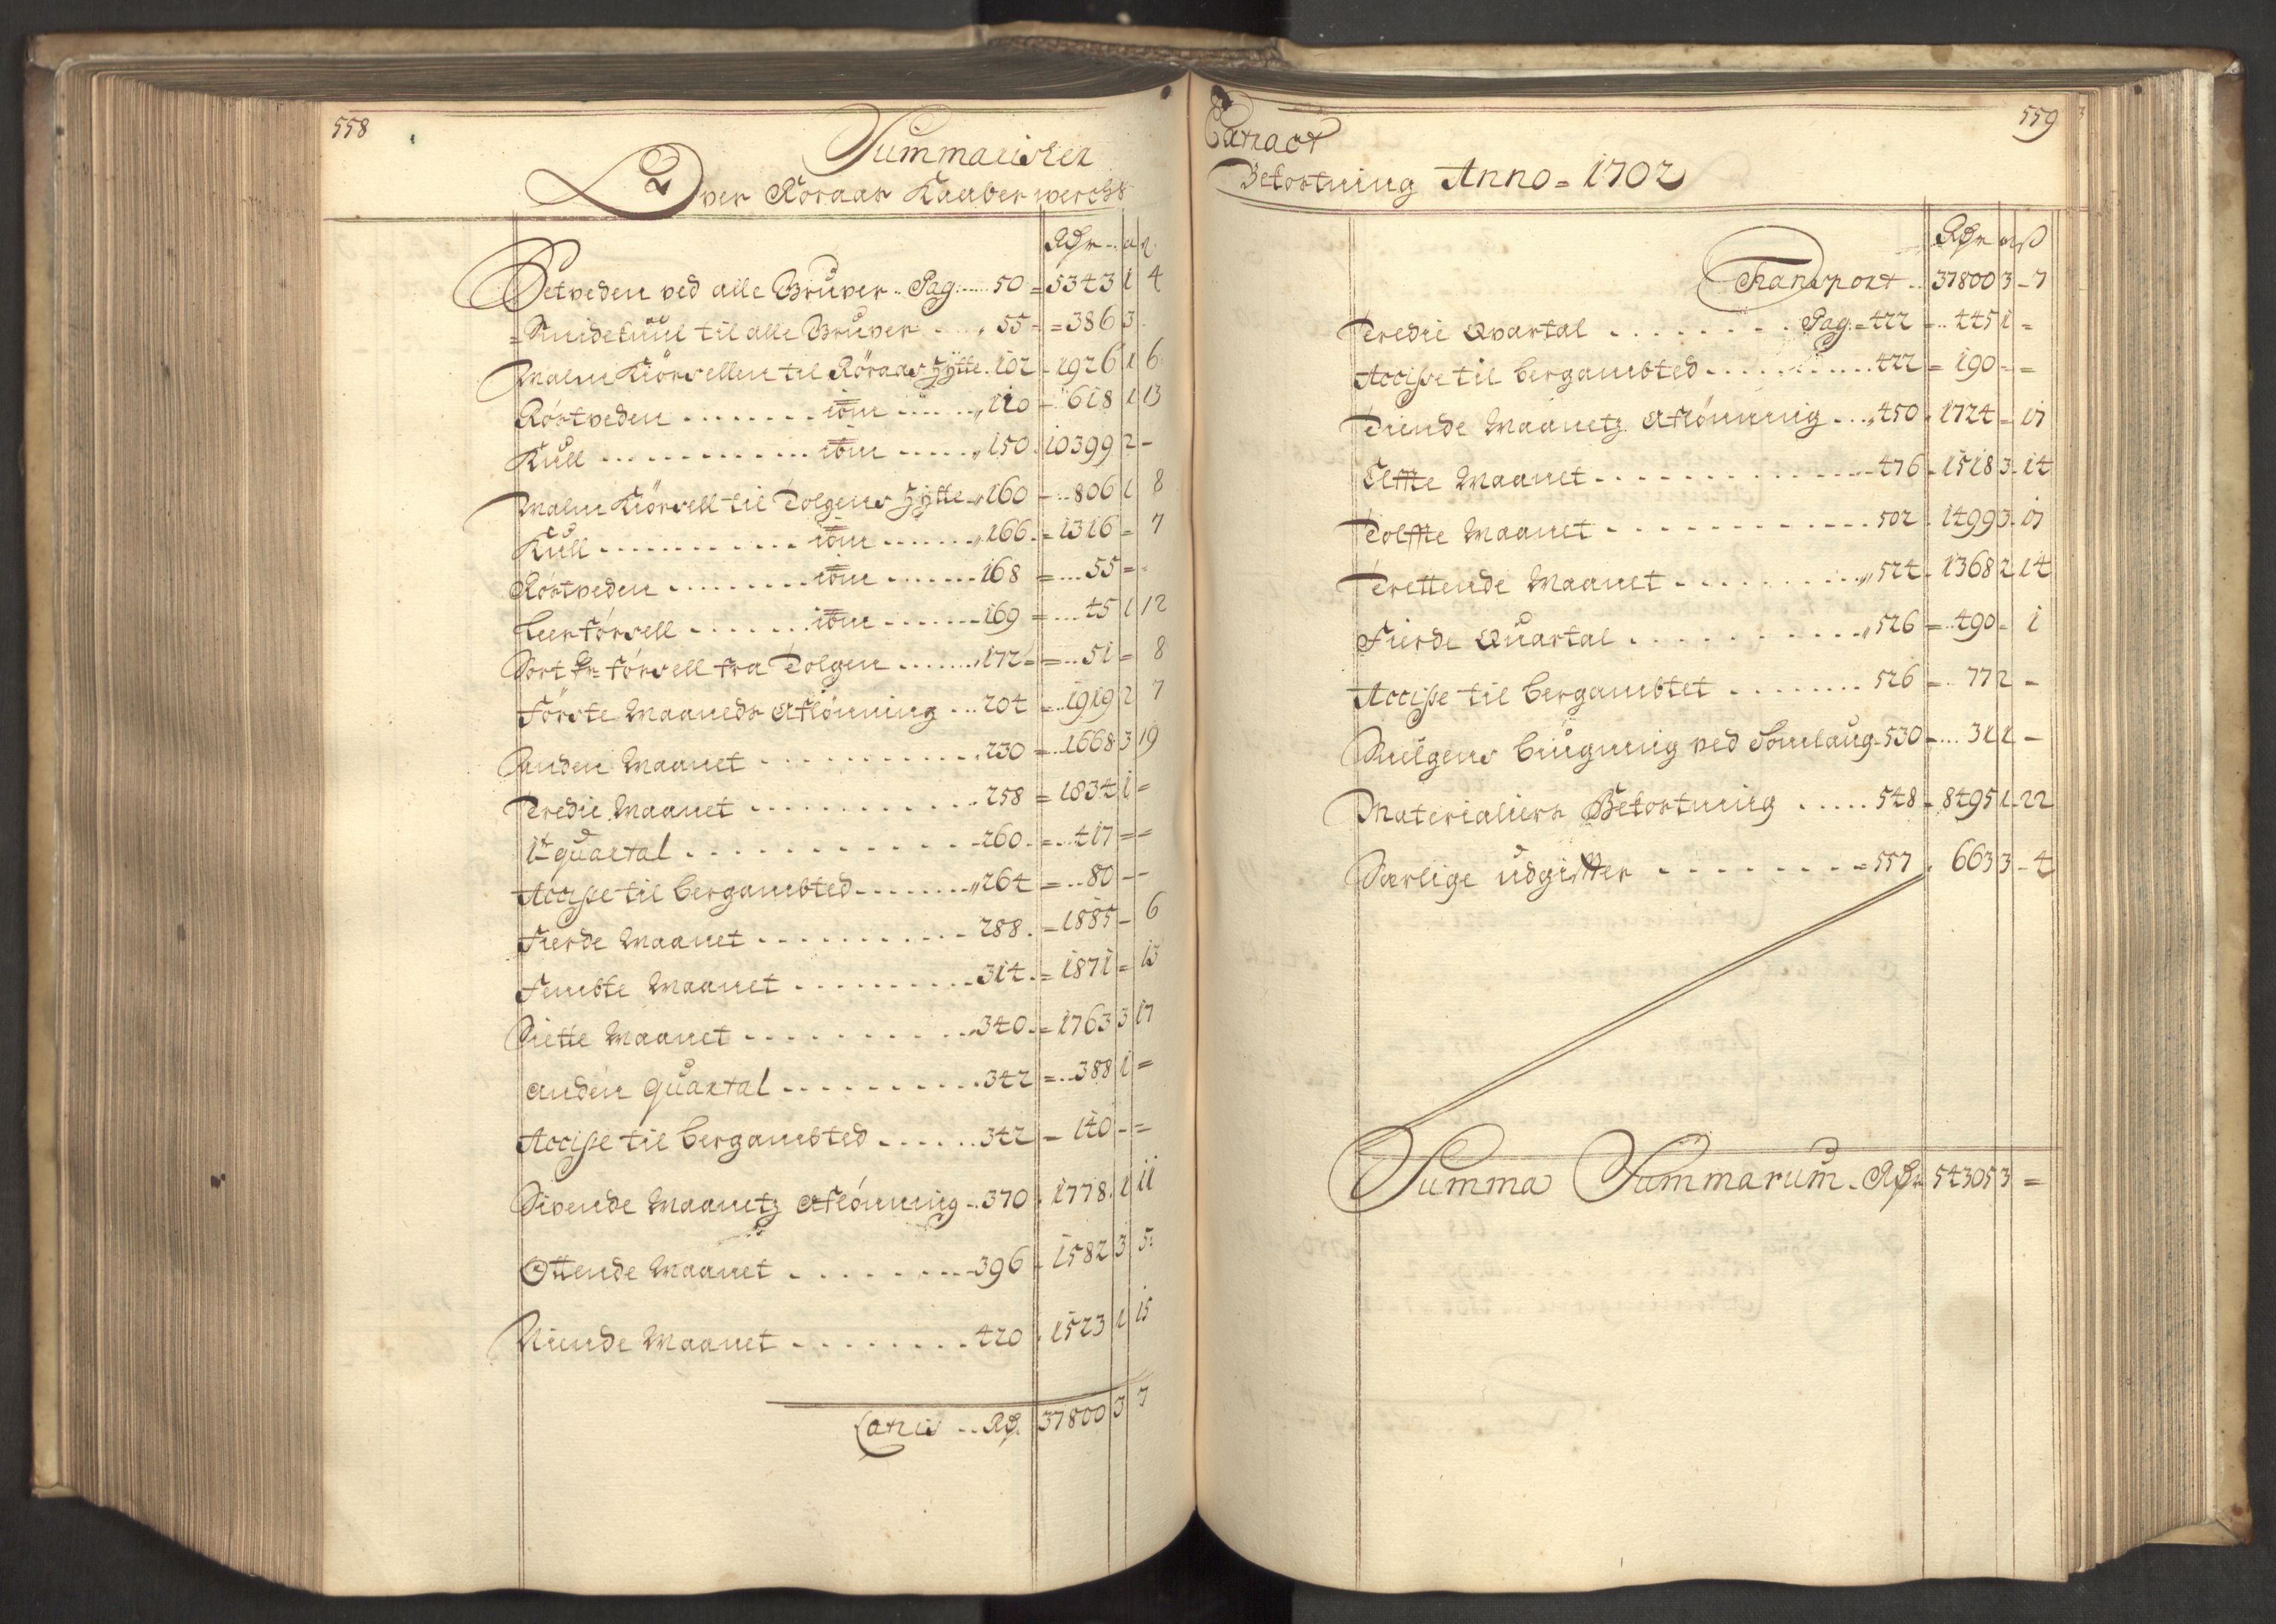 558
Summarischer
Over Röraas Kaaber werchs
Rdr a s
Setveden ved alle Gruver .. Pag: 50 = 5343 1 4
Smidekuul til alle Gruver 55 = 386 3
Malm Kiörsellen til Röraas Hytte 102 1926 1 6
Röstveden itm 110 618 1 13
Kull itm 150 10399 2 -
Malm Kiörsell til Tolgens Hytte 160 806 1 8
Kull itm 166 = 1316 = 7
Röstveden itm 168 = 55 =
Leerförsell itm 169 = 45 1 12
Sort Kr försell fra Tolgen 172 = 51 = 8
Förste Maaneds Aflönning 204 = 1919 2 7
Anden Maanet 230 = 1668 3 19
Tredie Maanet 258 = 1834 1 =
1te quartal 260 = 417 = =
Accisse til bergambted 264 = 80 - -
Fierde Maanet 288 = 1885 - 6
Fembte Maanet 314 = 1871 = 13
Siette Maanet 340 = 1763 3 17
anden quartal 342 = 388 1 =
Accisse til bergambted 342 = 140 - =
Sivende Maanetz Aflönning 370 1778 1 11
Ottende Maanet 396 1582 3 5
Niende Maanet 420 1523 1 15
Latris Rd. 37800 3 7
559
Extract
Bekostning Anno = 1702
Rdr a ß
Transport 37800 3 - 7
Tredie Qvartal Pag: = 422 = 445 1 =
Accisse til bergambted 422 = 190 - =
Tiende Maanetz Aflönning 450 1724 = 17
Elffte Maanet 476 1518 3 14
Tolffte Maanet 502 1499 3 17
Trettende Maanet 524 1368 2 14
Fierde Quartal 526 = 490 - 1
Accisse til bergambtet 526 = 77 2 -
Smeltens bÿgning ved 530 = 31 1 -
Materialiers Bekostning 548 = 8495 1 - 22
Særlige udgiffter = 557 663 3 - 4
Summa Summarum Rdr 54305 3 =